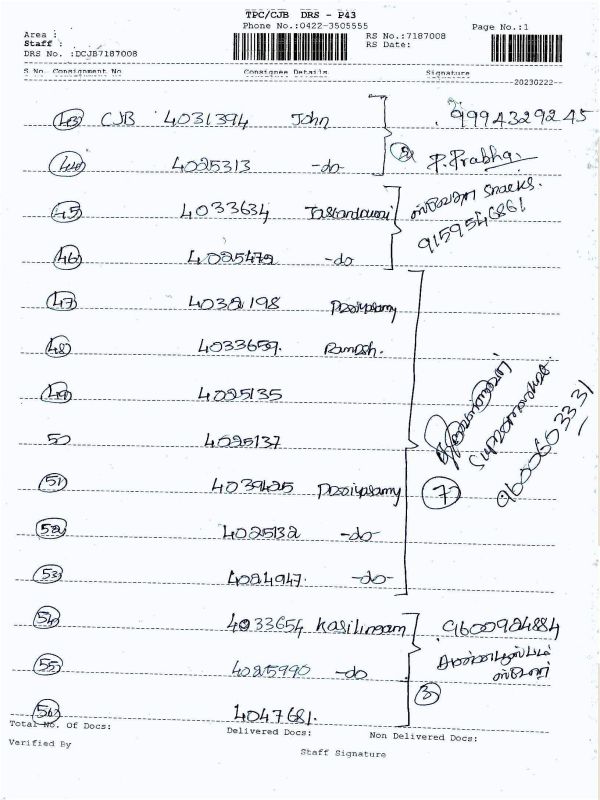 TPC/CJB DRS - P43
Phone No.:0422-3505555
Area :
Staff :
DRS No. :DCJB7187008
RS No.:7187008
RS Date:
Page No.:1
S.No. Consignment No Consignee Details Signature
20230222--
43 CJB 4031394 John 9994329245
44 4025313 -do- 2 P. Prabha
45 4033634 snacks.
9159546861
46 4025479 -do
47 4032198 Paziyasamy
48 4033659. Ramesh.
49 4025135
50 4025137
9600663331
51 4039425 Paziyasamy 7
52 4025132 -do-
53 4024947. -do-
54 4033654 Kasilingam 9600924884
55 4025990 -do
ஸ்டோர்
3
56 4047681.
Total No. Of Docs: Delivered Docs: Non Delivered Docs:
Verified By
Staff Signature